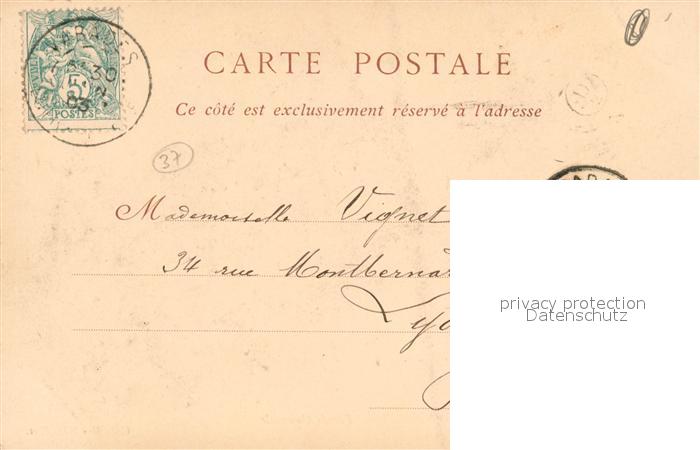 CARTE POSTALE
Ce côté est exclusivement réservé à l'adresse
5c
POSTES
37
Mademoiselle Vignet
34 rue Montbernar
Ly
privacy protection
Datenschutz